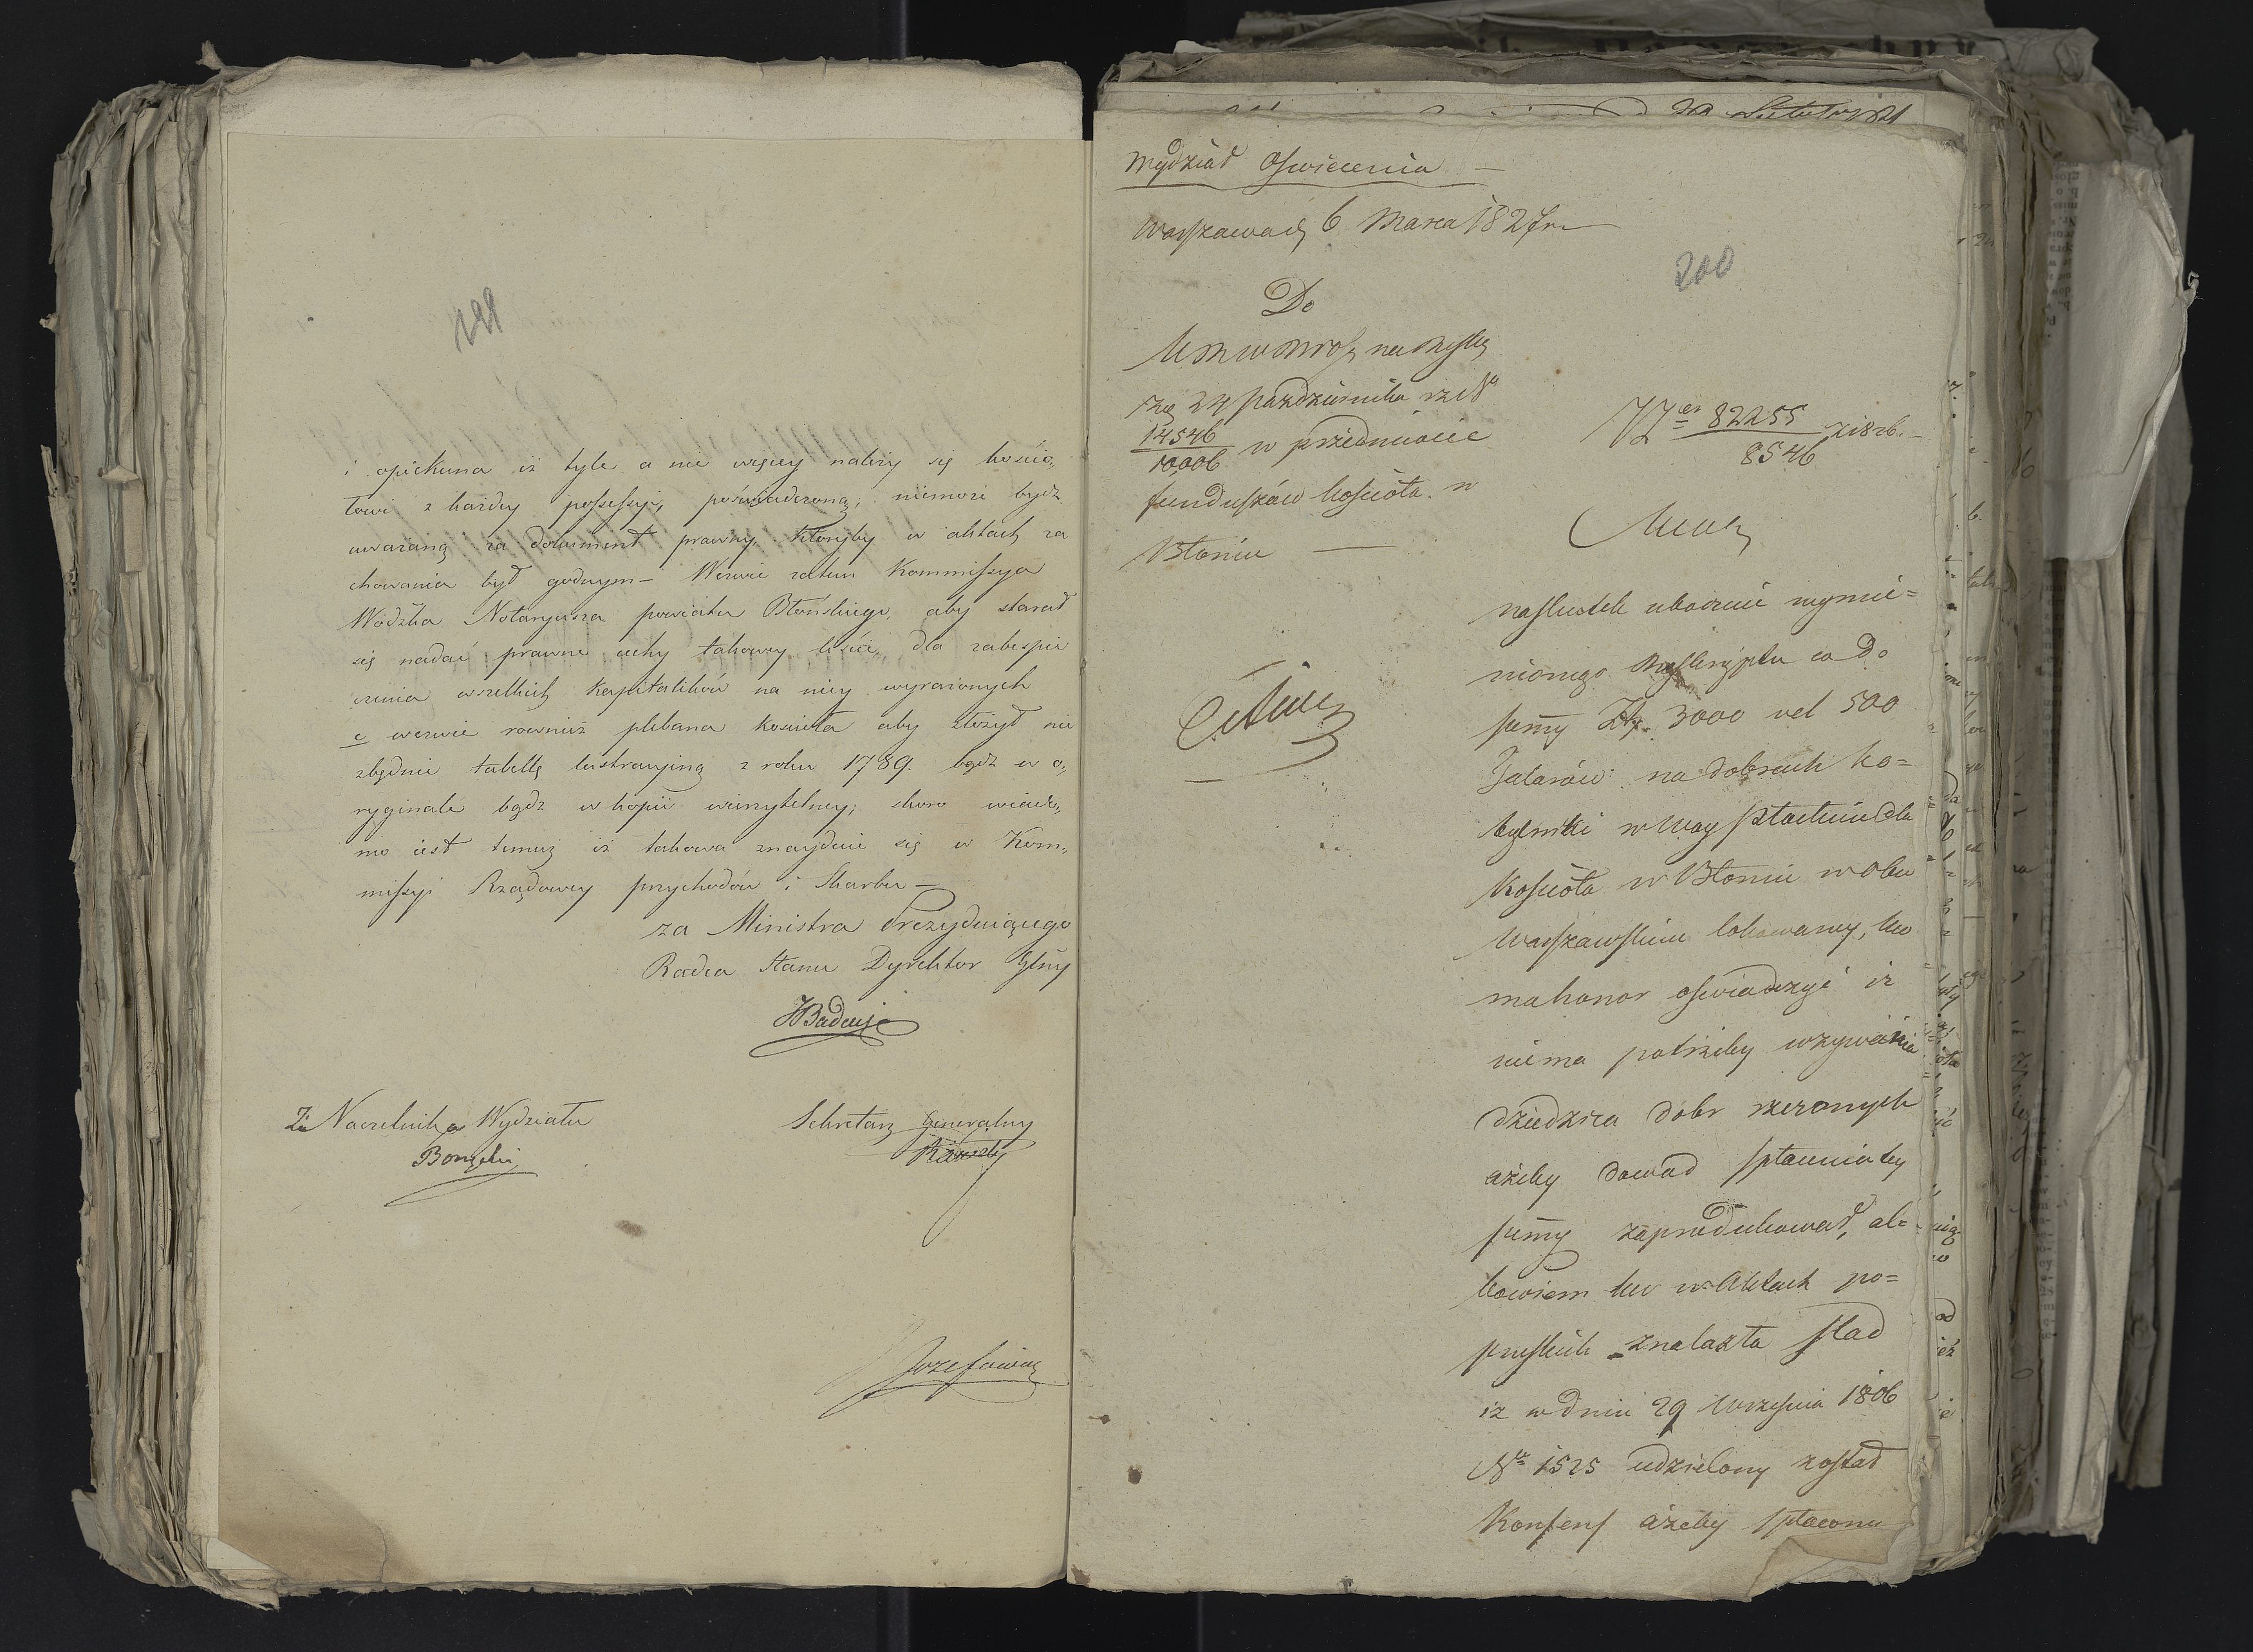 199
i opiekuna iż tyle a nie więcey należy się kościo„
łowi z każdey possessyi, poświadczoną, niemoże bydź
uważaną za dokument prawny, któryby w aktach za
chowania był godnym — Wezwie zatem Kommissya
Wódzka Notaryusza powiatu Błońskiego, aby starał
się nadać prawne cechy takowey liście, dla zabespie
czenia wszelkich Kapitalików na niey wyrażonych
e wezwie rownież plebana kościoła aby złożył nie
zbędnie tabellę lustracyiną z roku 1789. bądź w o„
ryginale bądź w kopii wierzytelney; skoro wiado„
mo iest temuż iż takowa znayduie się w Kom„
missyi Rządowey przychodów i Skarbu —
za Ministra Prezyduiącego
Radca Stanu Dyrektor Glny
Badeni
Za Naczelnika Wydziału
Sekretarz Generalny
Józefowicz
Wydział Oswiecenia —
Warszawa d. 6 Marca 1827 r.
200
Do
na
24 Pazdziernika
14546
10006 w przedmiocie
funduszów kościoła w
Błoniu —
82255
8546 z 1826. —
na skutek ubocznie wymie=
nionego Reskryptu co do
summy Złp. 3000 vel 500
Talarów na dobrach Ko=
tylniki w Wwa dla
Kościoła w Błoniu w Obw
Warszawskim lokowaney, Kw
ma honor oswiadczyć iż
niema potrzeby wzywania
dziedzica dobr rzeczonych
ażeby dowod spłacenia tey
summy zaprodukował, al=
bowiem Kw w Aktach po=
pruskich znalazła slad
iż w dniu 29 Września 1806
Nr 1525 udzielony został
Konsens ażeby spłacone